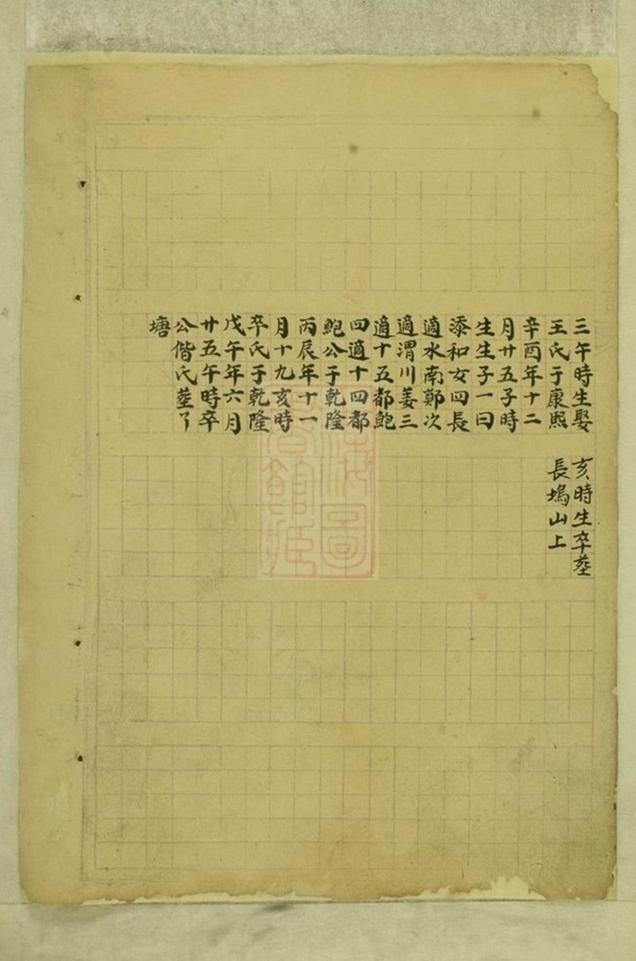 三午時生娶
王氏于康熙
辛酉年十二
月廿五子時
生生子一曰
添和女四長
適水南鄭次
適渭川姜三
適十五都鮑
四適十四都
鮑公于乾隆
丙辰年十一
月十九亥時
卒氏于乾隆
戊午年六月
廿五午時卒
公偕氏塟丫
塘
亥時生卒塟
長塢山上